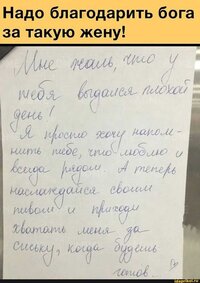 Надо благодарить бога
за такую жену!
Мне жаль, что у
тебя выдался плохой
день!
Я просто хочу напом-
нить тебе, что люблю и
всегда рядом. А теперь
наслаждайся своим
пивом и приходи
хватать меня за
сиську, когда будешь
готов.
idaprikol.ru